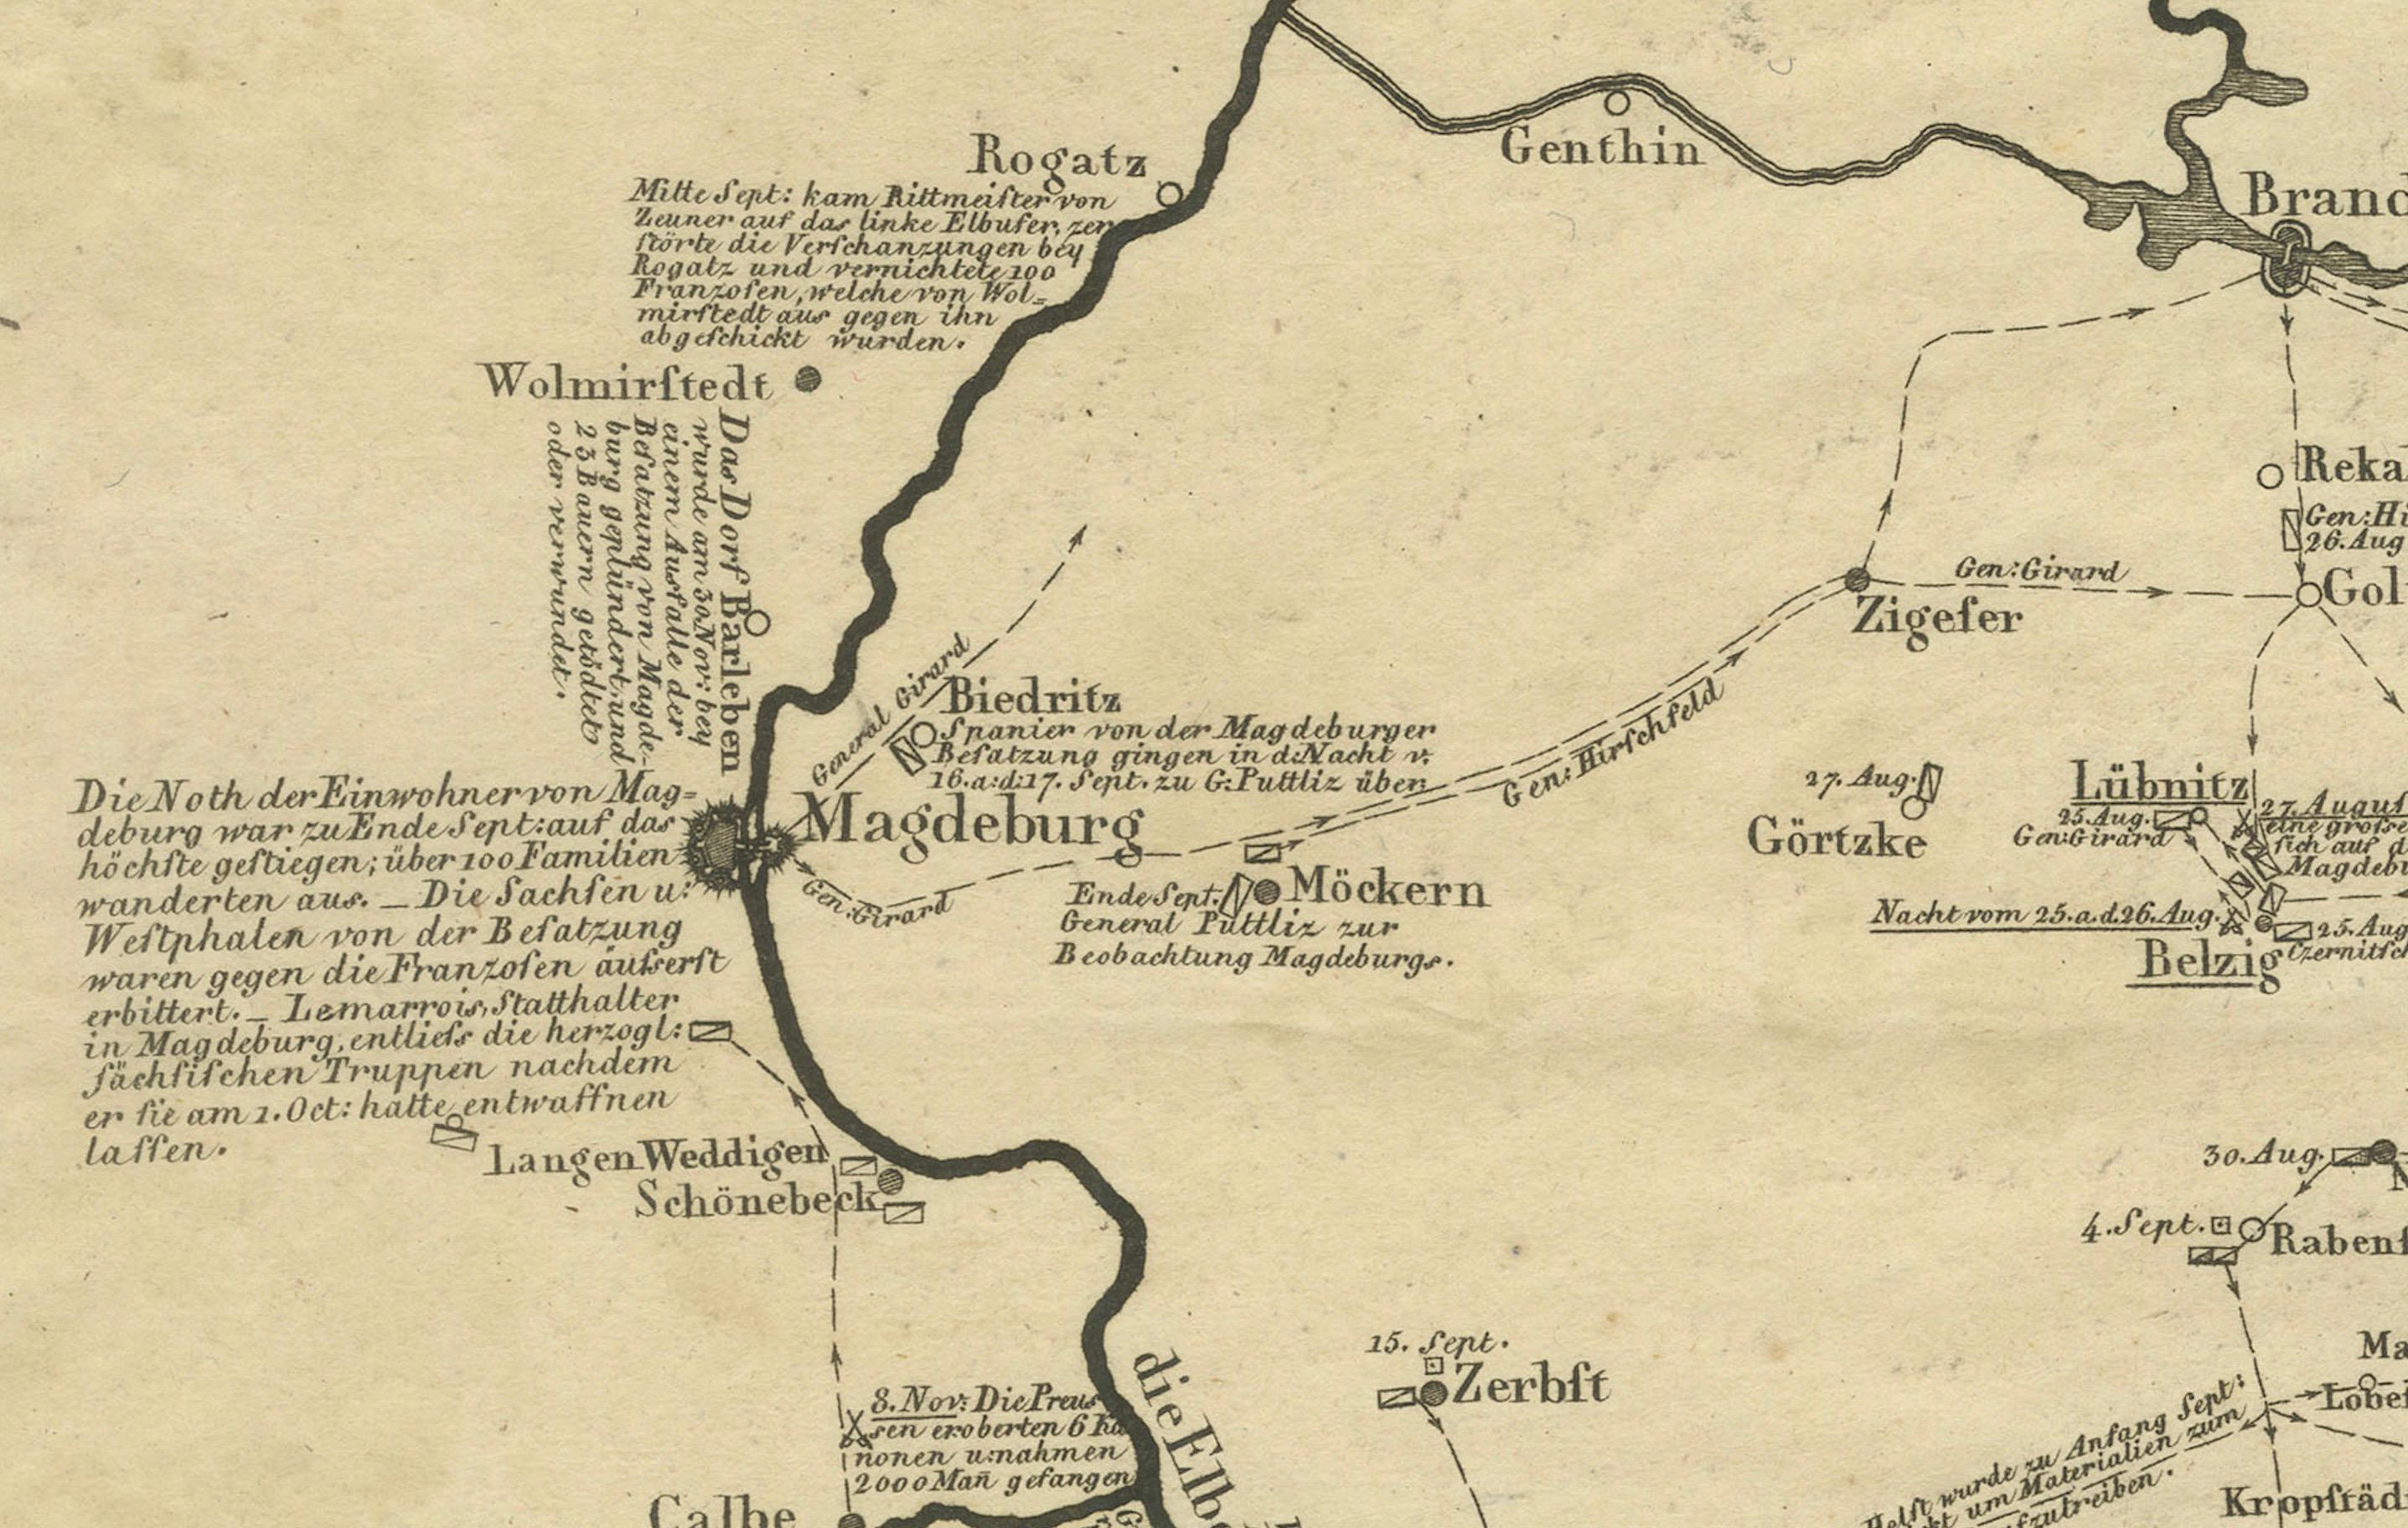 Rogatz
Mitte Sept: kam Rittmeiſter von
Zeuner auf das linke Elbufer, zer
ſtörte die Verſchanzungen bey
Rogatz und vernichtete 100
Franzoſen, welche von Wol=
mirſtedt aus gegen ihn
abgeſchickt wurden.
Genthin
Brand
Wolmirſtedt
Das Dorf Barleben
wurde am 30 Nov: bey
einem Ausfalle der
Beſatzung von Magde-
burg geplündert, und
23 Bauern getödtet
oder verwundet.
Reka
Gen: Hi
26. Aug
Gen: Girard
Gol
Zigeſer
General Girard
Biedritz
Spanier von der Magdeburger
Beſatzung gingen in d: Nacht v:
16. a: d: 17. Sept. zu G: Puttliz über
Gen: Hirſchfeld
Magdeburg
Gen: Girard
Die Noth der Einwohner von Mag=
deburg war zu Ende Sept: auf das
höchſte geſtiegen; über 100 Familien
wanderten aus. _ Die Sachſen u:
Weſtphalen von der Beſatzung
waren gegen die Franzoſen äuſserſt
erbittert. _ Lemarrois, Statthalter
in Magdeburg, entlieſs die herzogl:
ſächſiſchen Truppen nachdem
er ſie am 1. Oct: hatte entwaffnen
laſſen.
Ende Sept. Möckern
General Puttliz zur
Beobachtung Magdeburgs.
27. Aug.
Görtzke
Lübnitz
25. Aug.
Gen: Girard
27. Auguſ
eine groſse
ſich auf d
Magdebu
Nacht vom 25. a. d. 26. Aug.
25. Aug
Czernitſch
Belzig
Langen Weddigen
Schönebeck
30. Aug.
4. Sept.
Rabenſ
15. Sept.
Zerbſt
Ma
Lobeſ
8. Nov: Die Preuſ
sen eroberten 6 Ka
nonen u: nahmen
2000 Man̄ gefangen
die Elbe
Calbe
Helſt wurde zu Anfang Sept:
kt um Materialien zum
fzutreiben.
Kropſtäd